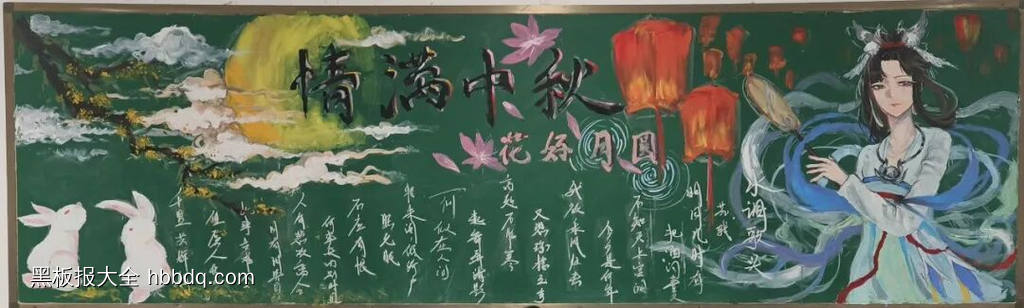 情满中秋
花好月圆
水调歌头
苏轼
明月几时有
把酒问青天
不知天上宫阙
今夕是何年
我欲乘风归去
又恐琼楼玉宇
高处不胜寒
起舞弄清影
何似在人间
照无眠
不应有恨
何事长向别时圆
人有悲欢离合
月有阴晴圆缺
此事古难全
但愿人长久
黑板报大全 hbbdq.com